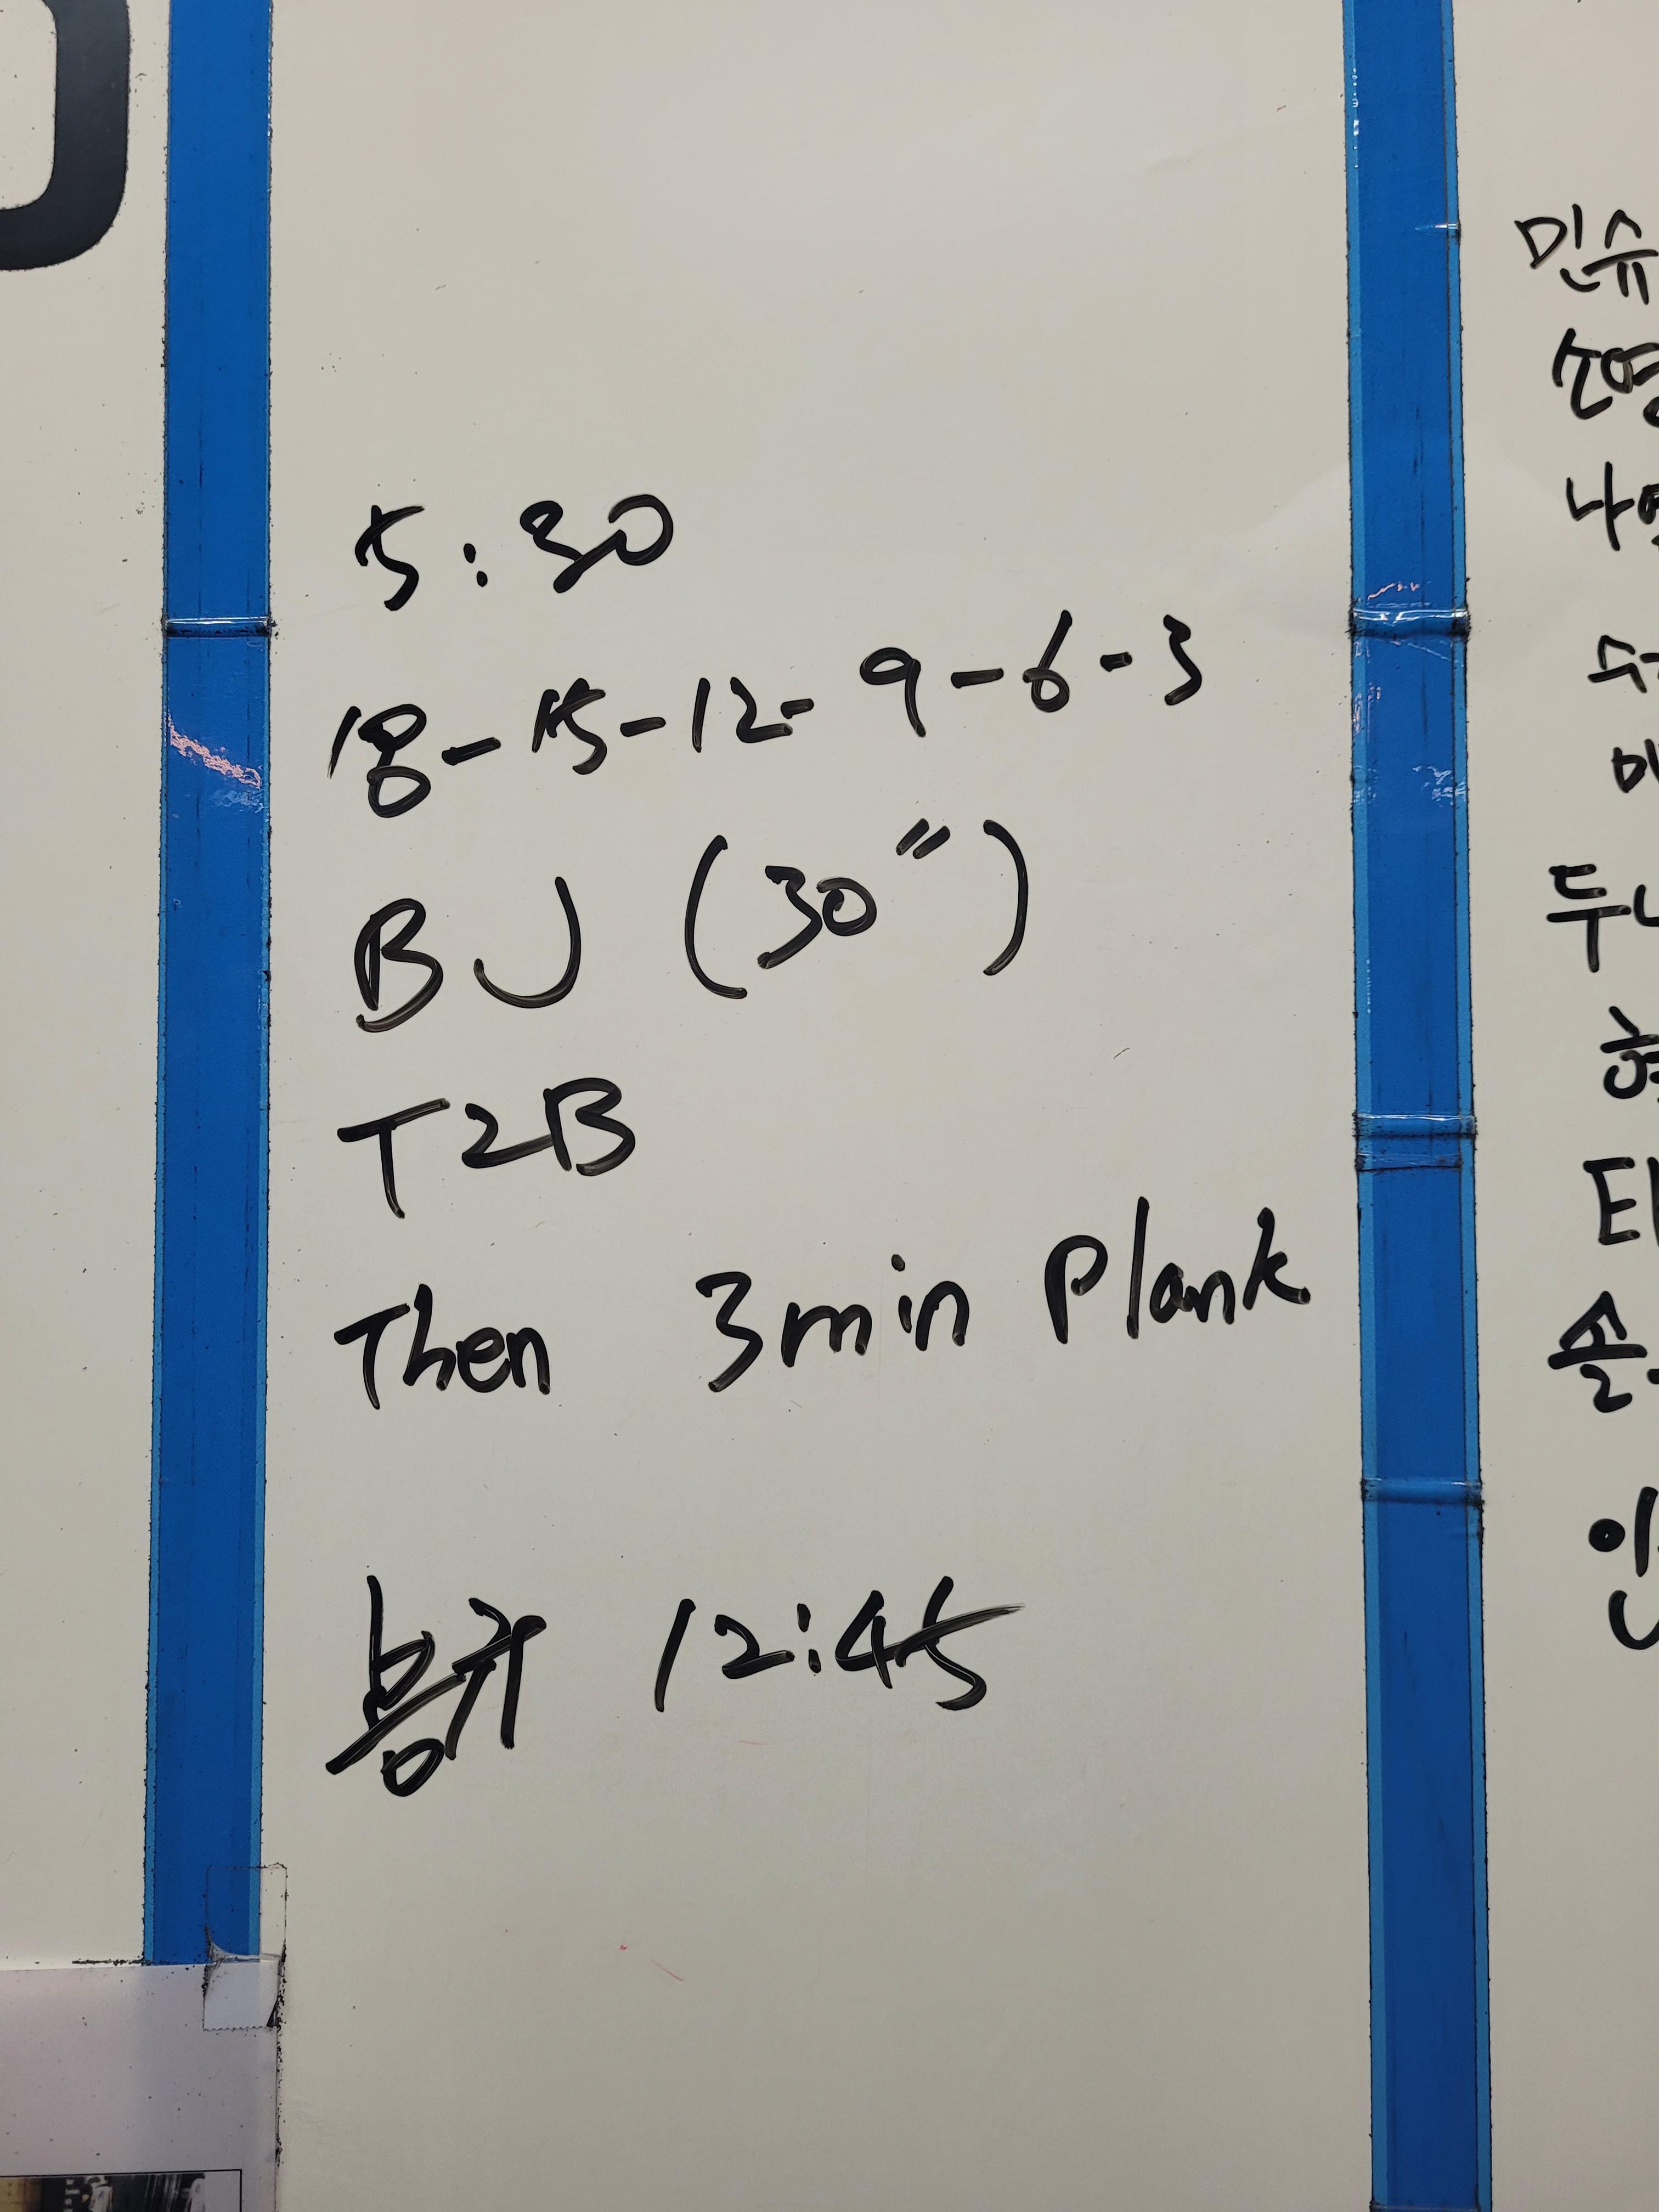 5:30
18-15-12-9-6-3
BJ (30")
T2B
Then 3min Plank
봉귀 12:45
민슈
나
두
솔